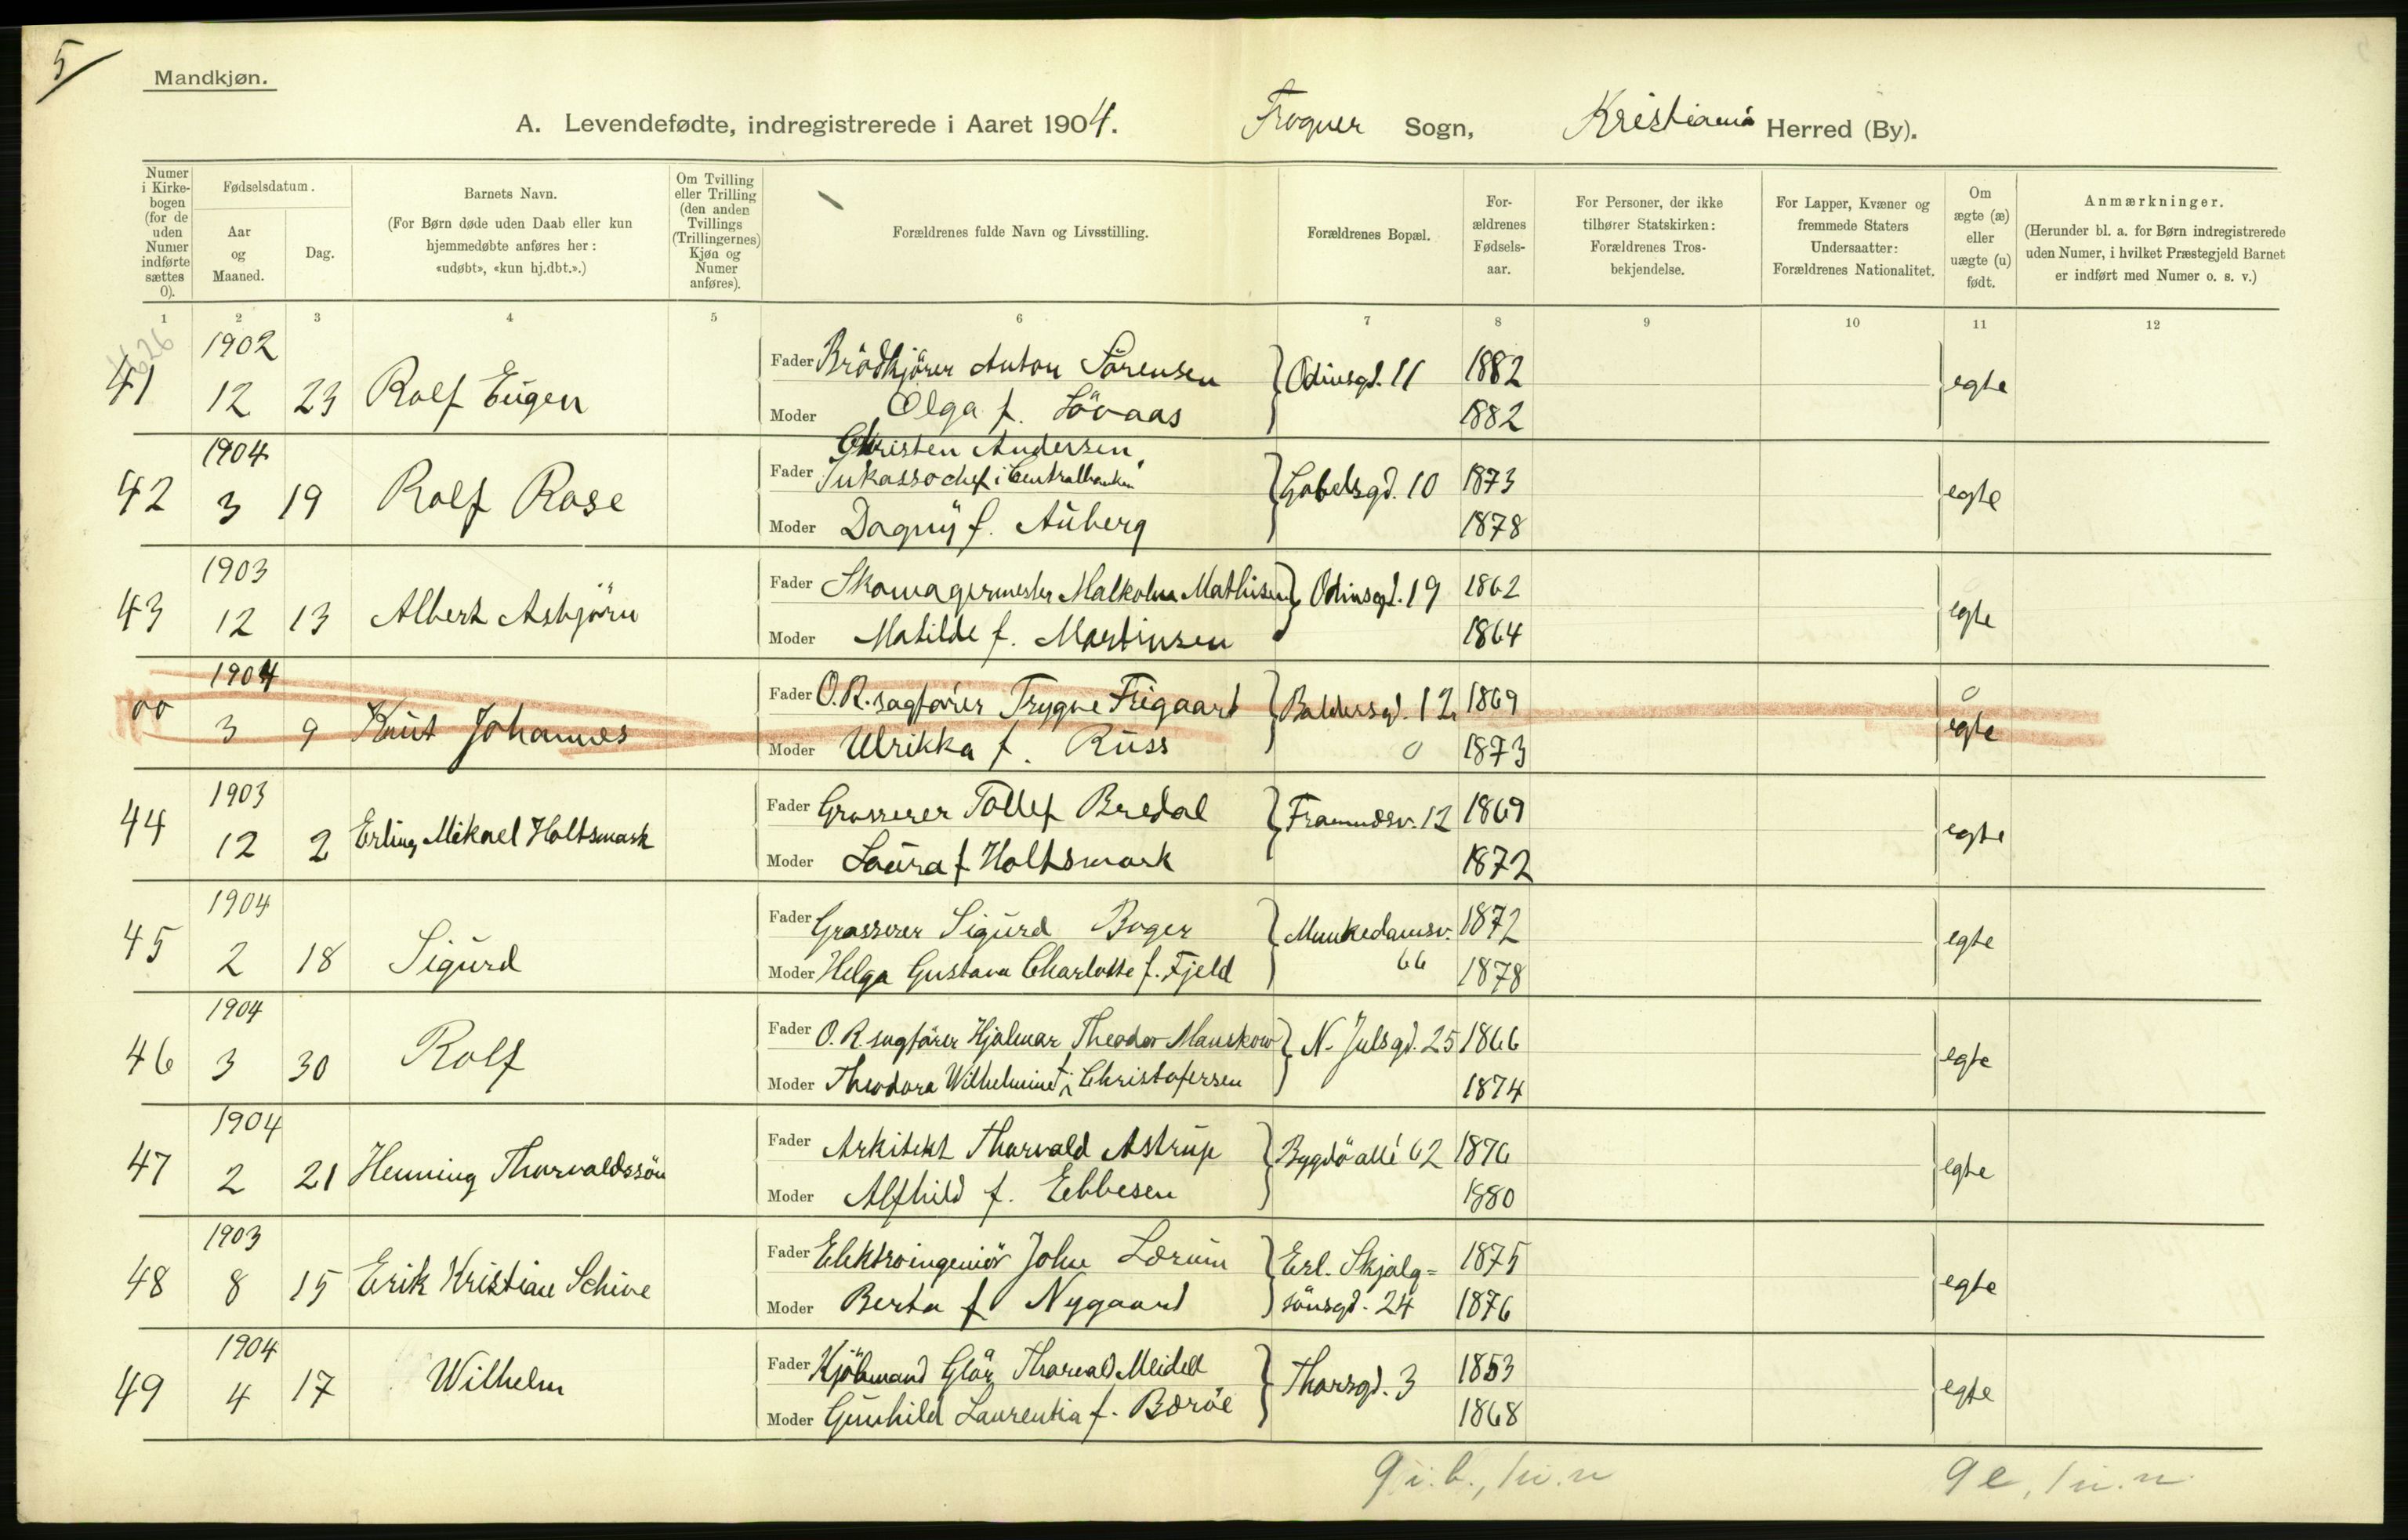 5
Mandkjøn.
A. Levendefødte, indregistrerede i Aaret 1904. Frogner Sogn, Kristiania Herred (By).
Numer i Kirke-bogen (for de uden Numer indførte sættes 0).
Fødselsdatum.
Aar og Maaned.
Dag.
Barnets Navn.
(For Børn døde uden Daab eller kun hjemmedøbte anføres her: «udøbt», «kun hj.dbt.».)
Om Tvilling eller Trilling (den anden Tvillings (Trillingernes) Kjøn og Numer anføres).
Forældrenes fulde Navn og Livsstilling.
Forældrenes Bopæl.
For-ældrenes Fødsels-aar.
For Personer, der ikke tilhører Statskirken: Forældrenes Tros-bekjendelse.
For Lapper, Kvæner og fremmede Staters Undersaatter: Forældrenes Nationalitet.
Om ægte (æ) eller uægte (u) født.
Anmærkninger.
(Herunder bl. a. for Børn indregistrerede uden Numer, i hvilket Præstegjeld Barnet er indført med Numer o. s. v.)
1 2 3 4 5 6 7 8 9 10 11 12
1902
41 12 23 Rolf Eugen
Fader Brödkjörer Anton Sörensen Odinsgd. 11 1882 egte
Moder Olga f. Lövaas 1882
1904
42 3 19 Rolf Rose
Christen Andersen,
Fader Inkassochef i Centralbanken Gabelsgd. 10 1873 egte
Moder Dagny f. Auberg 1878
1903
43 12 13 Albert Asbjörn
Fader Skomagermester Malkolm Mathisen Odinsgd. 19 1862 egte
Moder Matilde f. Martinsen 1864
1904
00 3 9 Knut Johannes
Fader O.R.sagförer Trygve Frigaard Baldersgd. 12 1869 egte
Moder Ulrikka f. Russ 0 1873
1903
44 12 2 Erling Mikael Holtsmark
Fader Grosserer Tollef Bredal Framnæsv. 12 1869 egte
Moder Laura f Holtsmark 1872
1904
45 2 18 Sigurd
Fader Grosserer Sigurd Boger Munkedamsv. 1872 egte
Moder Helga Gustava Charlotte f. Fjeld 66 1878
1904
46 3 30 Rolf
Fader O.R.sagförer Hjalmar Theodor Manskow N. Julsgd. 25 1866 egte
Moder Theodora Wilhelmine f. Christofersen 1874
1904
47 2 21 Henning Thorvaldssön
Fader Arkitekt Thorvald Astrup Bygdö allé 62 1876 egte
Moder Alfhild f. Ebbesen 1880
1903
48 8 15 Erik Kristian Schive
Fader Elektroingeniör John Lærum Erl. Skjalg= 1875 egte
Moder Berta f Nygaard sönsgd. 24 1876
1904
49 4 17 Wilhelm
Fader Kjöbmand Glör Thorvald Meidell Thorsgd. 3 1853 egte
Moder Gunhild Laurentia f. Bæröe 1868
9 i.b., 1 u.n 9 e, 1 u.n